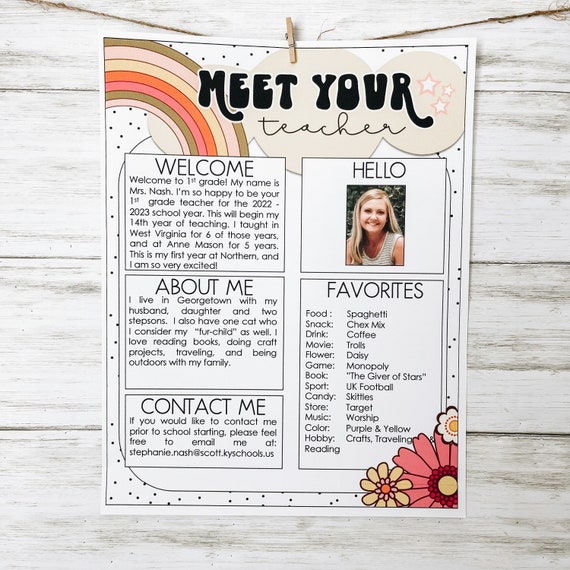 MEET YOUR
teacher
WELCOME
Welcome to 1st grade! My name is
Mrs. Nash. I'm so happy to be your
1st grade teacher for the 2022 -
2023 school year. This will begin my
14th year of teaching. I taught in
West Virginia for 6 of those years,
and at Anne Mason for 5 years.
This is my first year at Northern, and
I am so very excited!
HELLO
ABOUT ME
I live in Georgetown with my
husband, daughter and two
stepsons. I also have one cat who
I consider my "fur-child" as well. I
love reading books, doing craft
projects, traveling, and being
outdoors with my family.
FAVORITES
Food : Spaghetti
Snack: Chex Mix
Drink: Coffee
Movie: Trolls
Flower: Daisy
Game: Monopoly
Book: "The Giver of Stars"
Sport: UK Football
Candy: Skittles
Store: Target
Music: Worship
Color: Purple & Yellow
Hobby: Crafts, Traveling &
Reading
CONTACT ME
If you would like to contact me
prior to school starting, please feel
free to email me at:
stephanie.nash@scott.kyschools.us